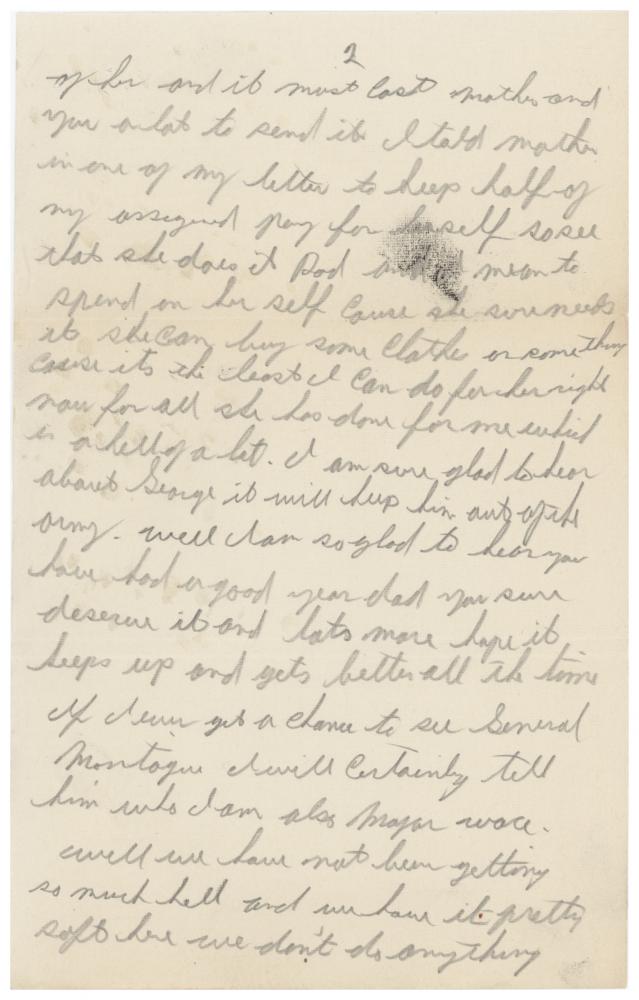 2
of her and it must cost mother and
you a lot to send it. I told mother
in one of my letter to keep half of
my assigned pay for herself so see
that she does it Dad and I mean to
spend on her self cause she sure needs
it she can buy some clothes or something
cause its the least I can do for her right
now for all she has done for me which
is a hell of a lot. I am sure glad to hear
about George it will keep him out of the
army. well I am so glad to hear you
have had a good year dad you sure
deserve it and lots more hope it
keeps up and gets better all the time
If I ever get a chance to see General
Montague I will certainly tell
him who I am also Major
well we have not been getting
so much hell and we have it pretty
soft here we don't do anything